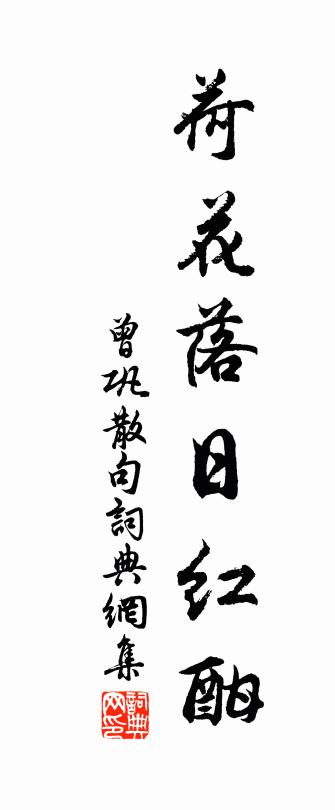 荷花落日红酣
曾巩散句詞典網集
詞典网印